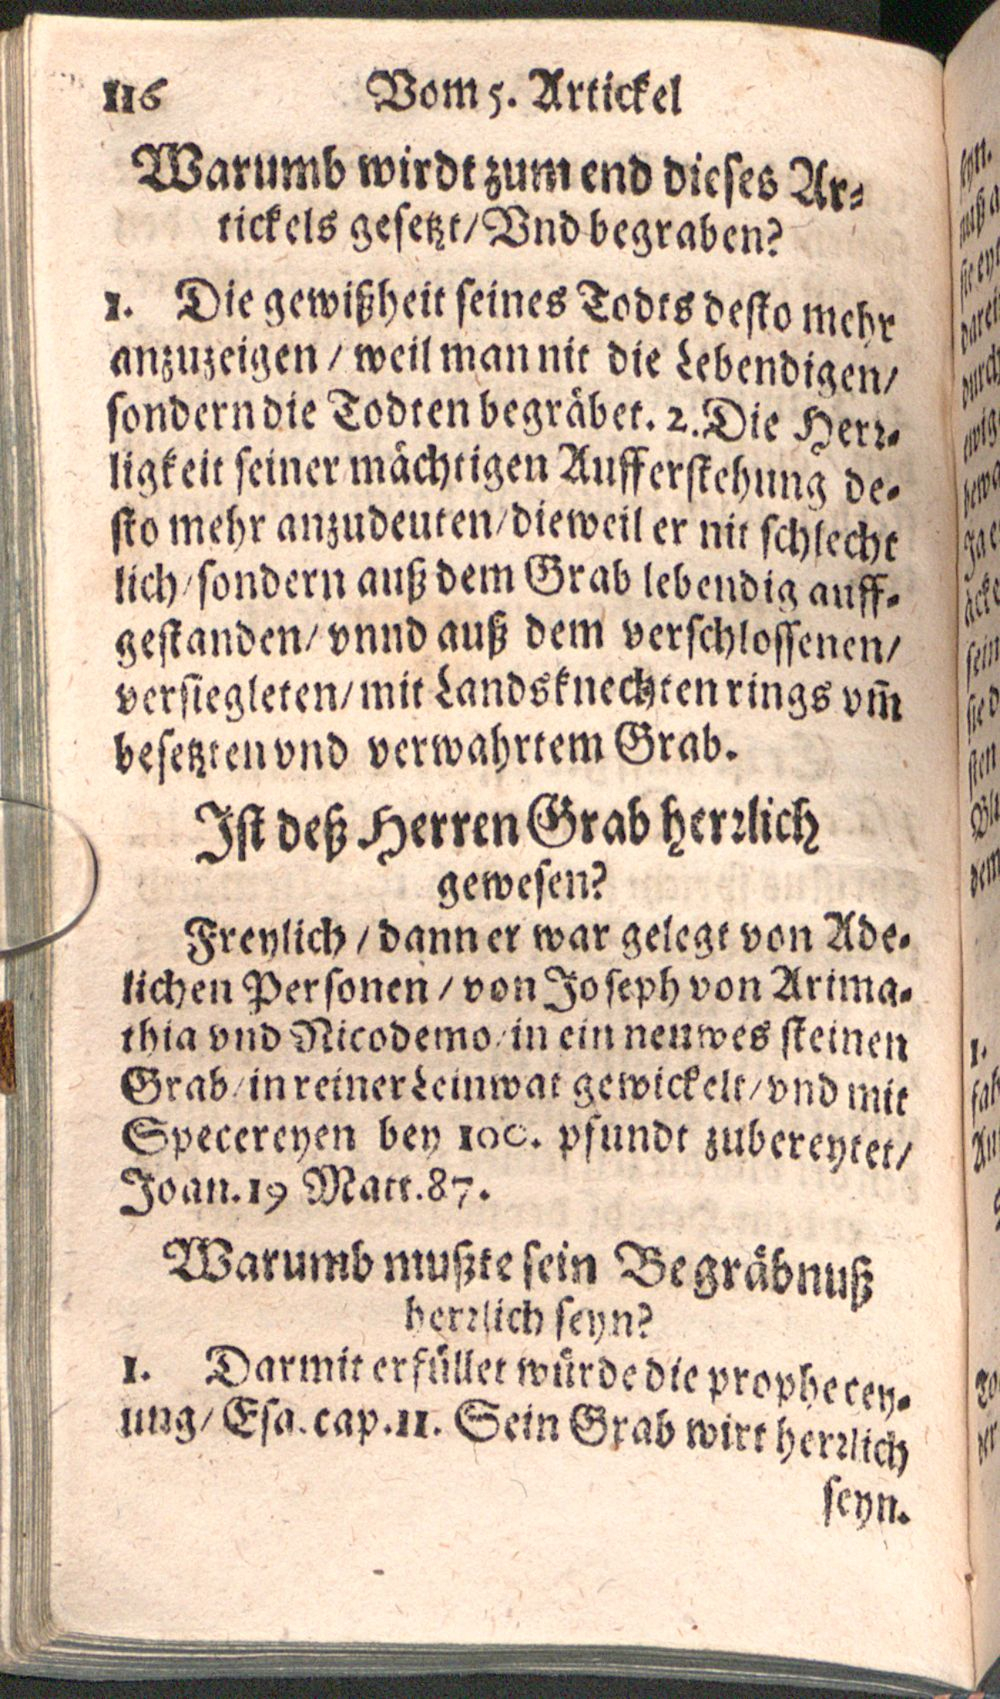 116 Vom 5. Artickel
Warumb wirdt zum end dieses Ar⸗
tickels gesetzt/ Vnd begraben?
1. Die gewißheit seines Todts desto mehr
anzuzeigen / weil man nit die Lebendigen/
sondern die Todten begräbet. 2. Die Herr⸗
ligkeit seiner mächtigen Aufferstehung de⸗
sto mehr anzudeuten/ dieweil er nit schlecht
lich/ sondern auß dem Grab lebendig auff⸗
gestanden/ vnnd auß dem verschlossenen/
versiegleten/ mit Landsknechten rings vm̃
besetzten vnd verwahrtem Grab.
Ist deß Herren Grab herrlich
gewesen?
Freylich / dann er war gelegt von Ade⸗
lichen Personen / von Joseph von Arima⸗
thia vnd Nicodemo/ in ein neuwes steinen
Grab/ in reiner Leinwat gewickelt/ vnd mit
Specereyen bey 100. pfundt zubereytet/
Joan. 19 Matt. 87.
Warumb mußte sein Begräbnuß
herrlich seyn?
1. Darmit erfüllet würde die prophecey⸗
ung/ Esa. cap. 11. Sein Grab wirt herrlich
seyn.